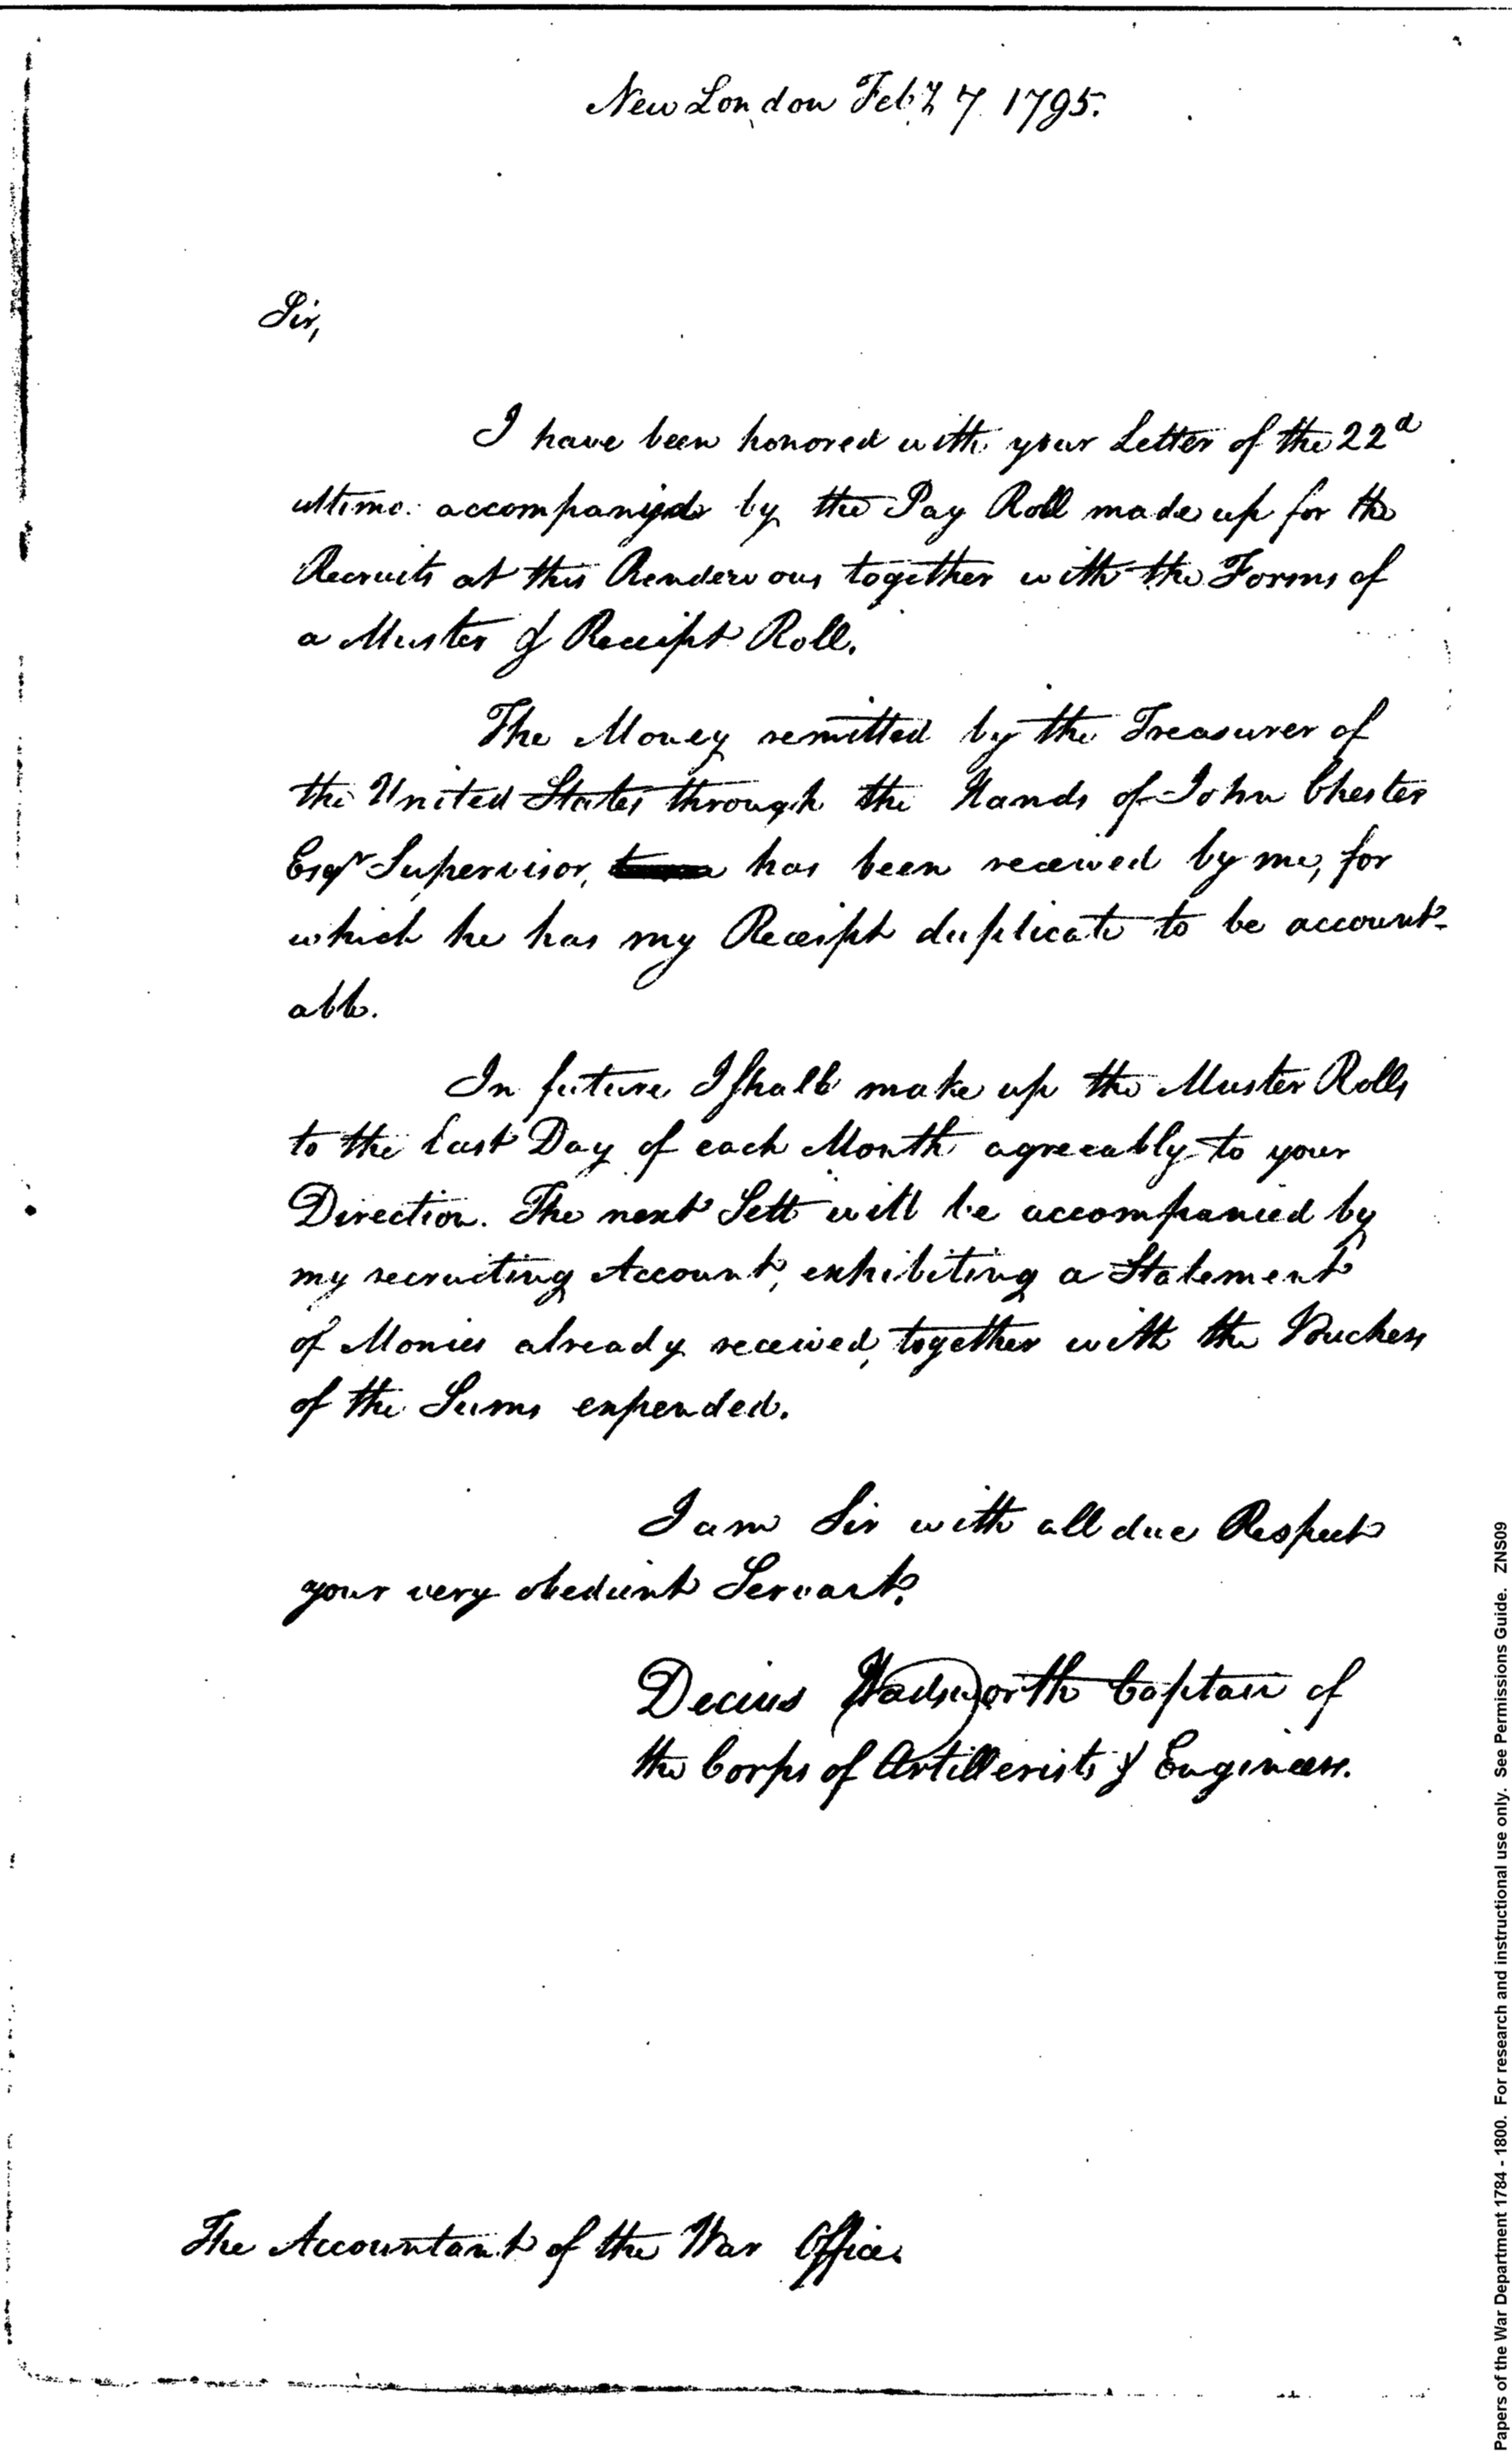 New London Feby 7 1795.
Sir,
I have been honored with your Letter of the 22d
ultimo. accompanied by the Pay Roll made up for the
Recruits at this Rendezvous together with the Forms of
a Muster & Receipt Roll.
The Money remitted by the Treasurer of
the United States through the Hands of John Chester
Esqr Supervisor, has been received by me, for
which he has my Receipt duplicate to be account-
able.
In future I shall make up the Muster Rolls
to the last Day of each Month agreeably to your
Direction. The next Sett will be accompanied by
my recruiting Account, exhibiting a Statement
of Monies already received, together with the Vouchers
of the Sums expended.
I am Sir with all due Respect
your very obedient Servant.
Decius Wadsworth Captain of
the Corps of Artillerists & Engineers.
The Accountant of the War Office.
Papers of the War Department 1784 - 1800. For research and instructional use only. See Permissions Guide. ZNS09